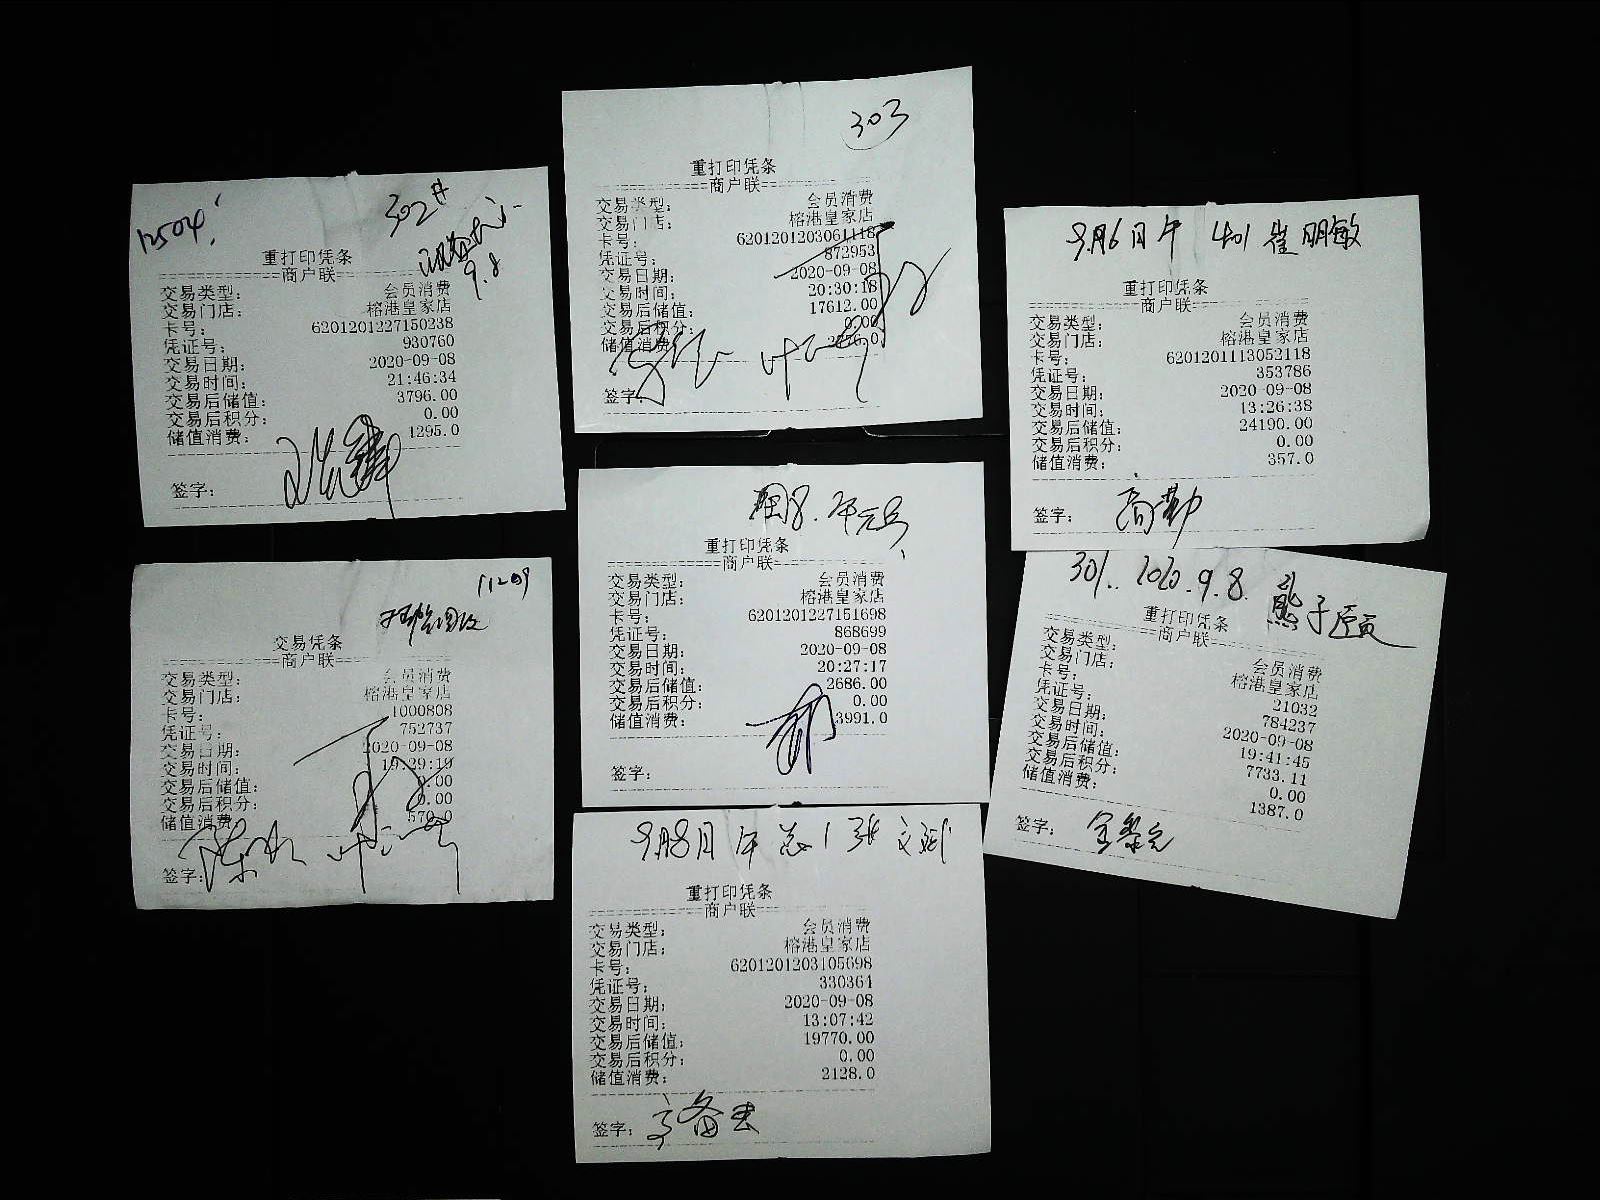 12504
302#
9.8
重打印凭条
商户联
交易类型: 会员消费
交易门店: 榕港皇家店
卡号: 6201201227150238
凭证号: 930760
交易日期: 2020-09-08
交易时间: 21:46:34
交易后储值: 3796.00
交易后积分: 0.00
储值消费: 1295.0
签字:
303
重打印凭条
商户联
交易类型: 会员消费
交易门店: 榕港皇家店
卡号: 6201201203061118
凭证号: 872953
交易日期: 2020-09-08
交易时间: 20:30:18
交易后储值: 17612.00
交易后积分: 0.00
储值消费:
签字:
9月6日午 401 崔明敏
重打印凭条
商户联
交易类型: 会员消费
交易门店: 榕港皇家店
卡号: 6201201113052118
凭证号: 353786
交易日期: 2020-09-08
交易时间: 13:26:38
交易后储值: 24190.00
交易后积分: 0.00
储值消费: 357.0
签字: 高勤
11209
交易凭条
商户联
交易类型: 会员消费
交易门店: 榕港皇家店
卡号: 1000808
凭证号: 752737
交易日期: 2020-09-08
交易时间: 19:29:19
交易后储值: 0.00
交易后积分: 0.00
储值消费: 570.0
签字:
重打印凭条
商户联
交易类型: 会员消费
交易门店: 榕港皇家店
卡号: 6201201227151698
凭证号: 868699
交易日期: 2020-09-08
交易时间: 20:27:17
交易后储值: 2686.00
交易后积分: 0.00
储值消费: 3991.0
签字:
301. 2020.9.8. 熊子
重打印凭条
商户联
交易类型: 会员消费
交易门店: 榕港皇家店
卡号: 21032
凭证号: 784237
交易日期: 2020-09-08
交易时间: 19:41:45
交易后储值: 7733.11
交易后积分: 0.00
储值消费: 1387.0
签字:
9月8日 午 总1 张文
重打印凭条
商户联
交易类型: 会员消费
交易门店: 榕港皇家店
卡号: 6201201203105698
凭证号: 330364
交易日期: 2020-09-08
交易时间: 13:07:42
交易后储值: 19770.00
交易后积分: 0.00
储值消费: 2128.0
签字: